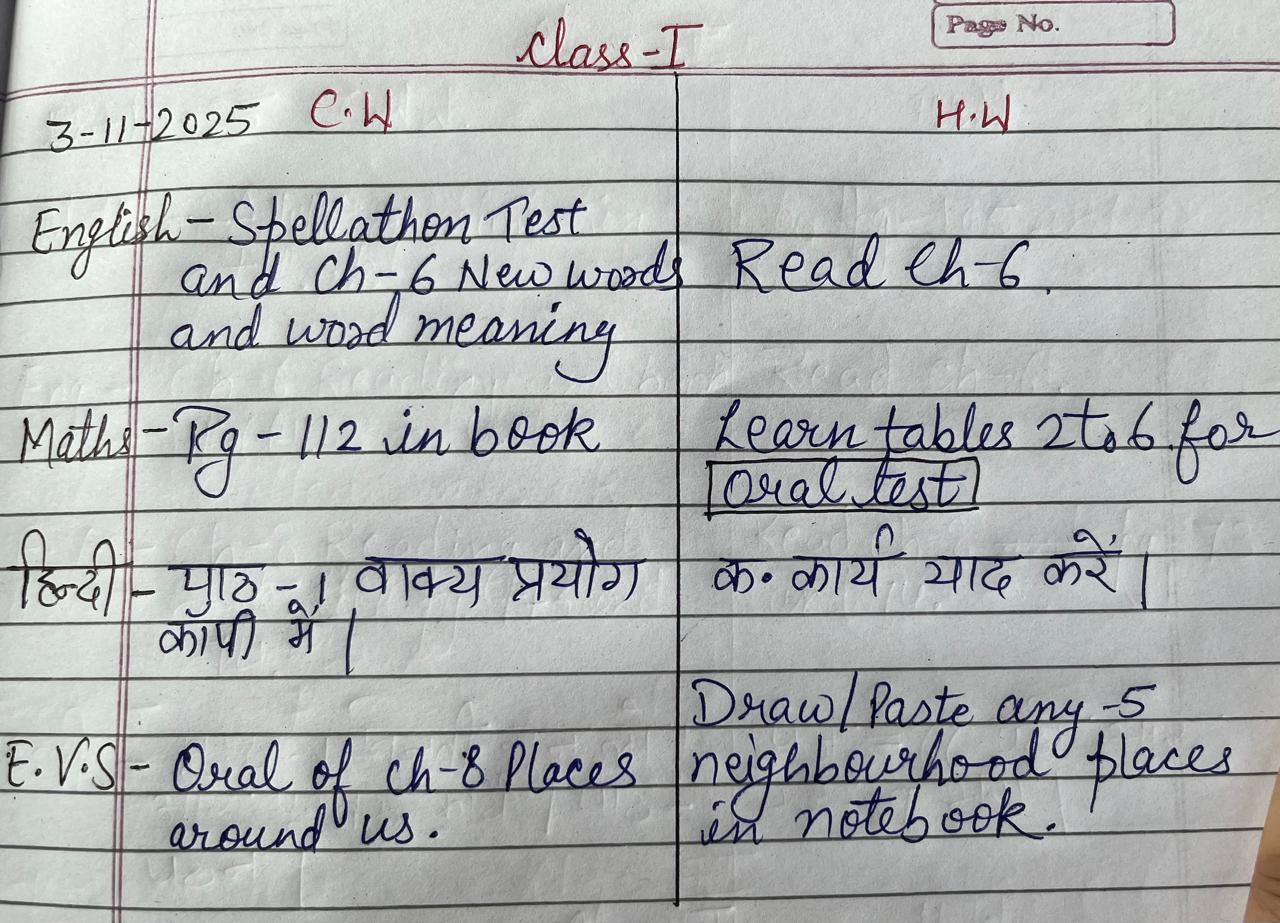 Page No.
Class-I
3-11-2025 C.W H.W
English - Spellathon Test
and Ch-6 New words Read Ch-6.
and word meaning
Maths - Pg - 112 in book Learn tables 2 to 6 for
Oral test
हिन्दी - पाठ - 1 वाक्य प्रयोग क. कार्य याद करें।
कॉपी में।
Draw/Paste any -5
E.V.S - Oral of ch-8 Places neighbourhood places
around us. in notebook.